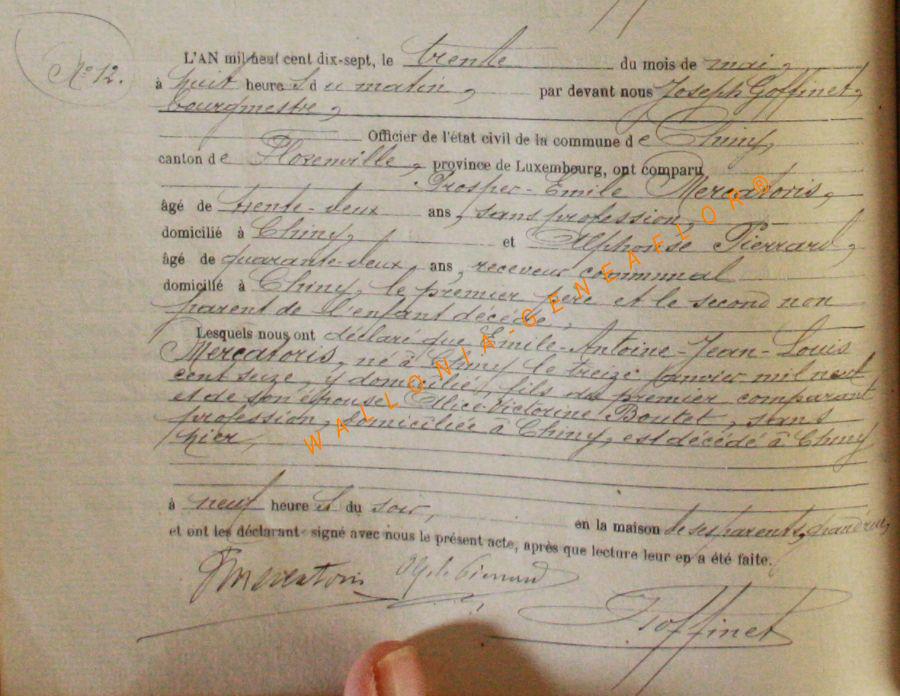 N° 12.
L'AN mil neuf cent dix-sept, le trente du mois de mai,
à huit heures du matin, par devant nous Joseph Goffinet,
bourgmestre,
Officier de l'état civil de la commune de Chiny,
canton de Florenville, province de Luxembourg, ont comparu
Prosper-Emile Mercatoris,
âgé de trente-deux ans, sans profession,
domicilié à Chiny, et Alphonse Pierrard,
âgé de quarante-deux ans, receveur communal
domicilié à Chiny, le premier père et le second non
parent de l'enfant décédé,
Lesquels nous ont déclaré que Emile-Antoine-Jean-Louis
Mercatoris, né à Chiny le treize janvier mil neuf
cent seize, y domicilié, fils du premier comparant
et de son épouse Alice Victorine Boutet, sans
profession, domiciliée à Chiny, est décédé à Chiny
hier,
à neuf heures du soir, en la maison de ses parents, grand'rue,
et ont les déclarant signé avec nous le présent acte, après que lecture leur en a été faite.
PMercatoris Pierrard
JGoffinet
WALLONIA-GENEAFLOR®